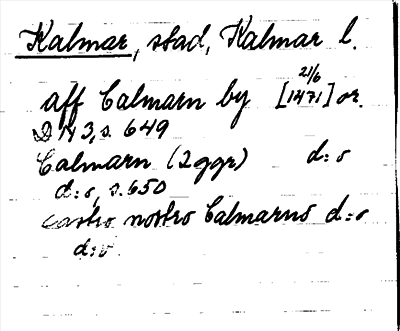 Kalmar, stad, Kalmar l.
aff Calmarn by [21/6 1471] or.
D N 3, s. 649
Calmarn (2 ggr) d:o
d:o, s. 650
castro nostro Calmarns d:o
d:o